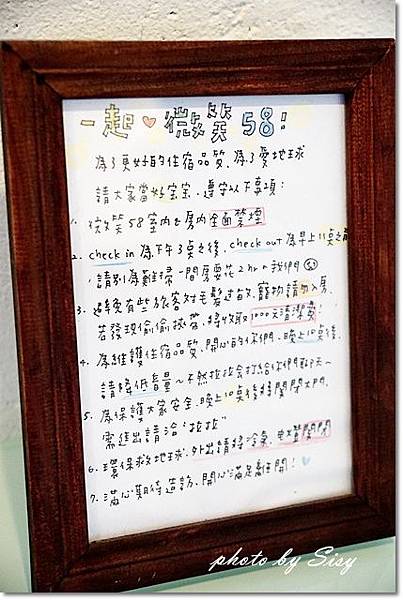 一起♥微笑58:
為了更好的住宿品質、為了愛地球
請大家當好宝宝、遵守以下事項:
1. 微笑58室內e房內全面禁煙
2. check in 為下午3點之後、check out 為早上11點之前
請別為難掃一間房要花2hr的我們
3. 避免有些旅客対毛髮过敏、寵物請勿入房、
若發現偷偷挾帶、將收取1000元清潔費
4. 為維護住宿品質、開心的你們、晚上10點後、
請降低音量~不然拉拉会打給你們聊天~
5. 為保護大家安全、晚上10點後將關閉大門、
需進出請洽"拉拉"
6. 環保救地球、外出請將冷氣、電燈關閉
7. 滿心期待造訪、開心滿足離開!♥
photo by Sisy